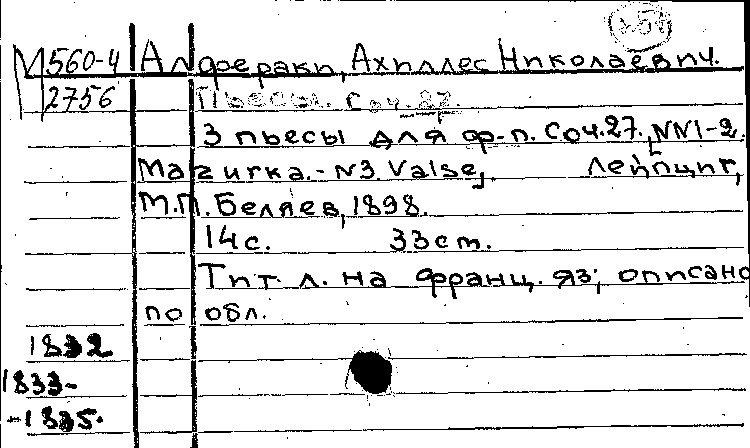 М560-4 Алфераки, Ахиллес Николаевич.
2756 Пьесы. Соч. 27.
3 пьесы для ф-п. Соч.27. NN1-2.
Мазурка. - N3. Valse. Лейпциг,
М.П. Беляев, 1898.
14с. 33cm.
Тит. л. на франц. яз; описано
по обл.
1832
1833-
-1835.